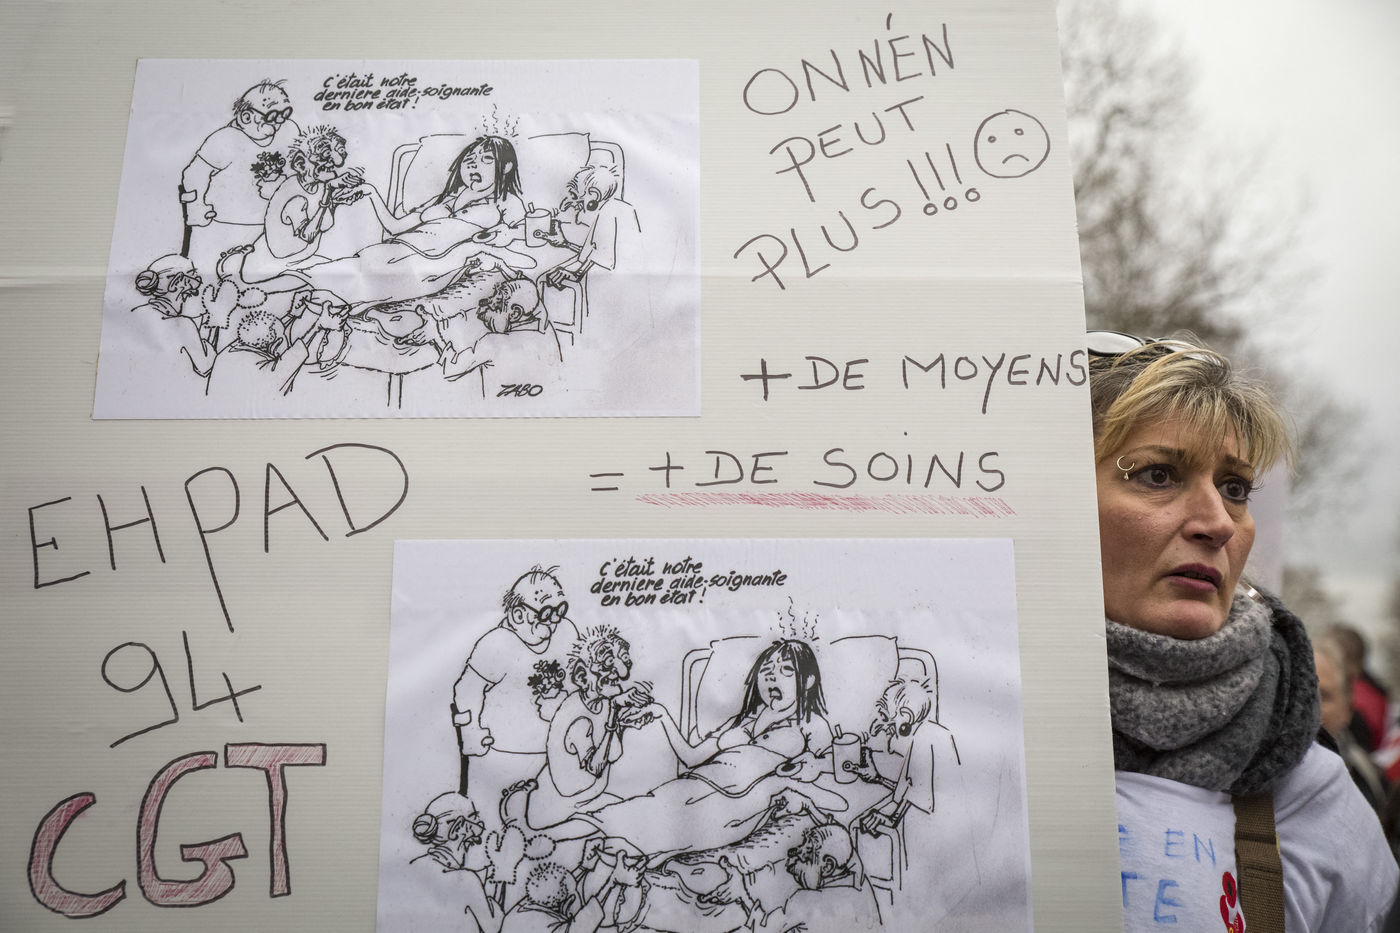 C'était notre
dernière aide-soignante
en bon état !
ZABO
ON NÉN
PEUT
PLUS !!!
+ DE MOYENS
= + DE SOINS
EHPAD
94
CGT
C'était notre
dernière aide-soignante
en bon état !
EN
TE